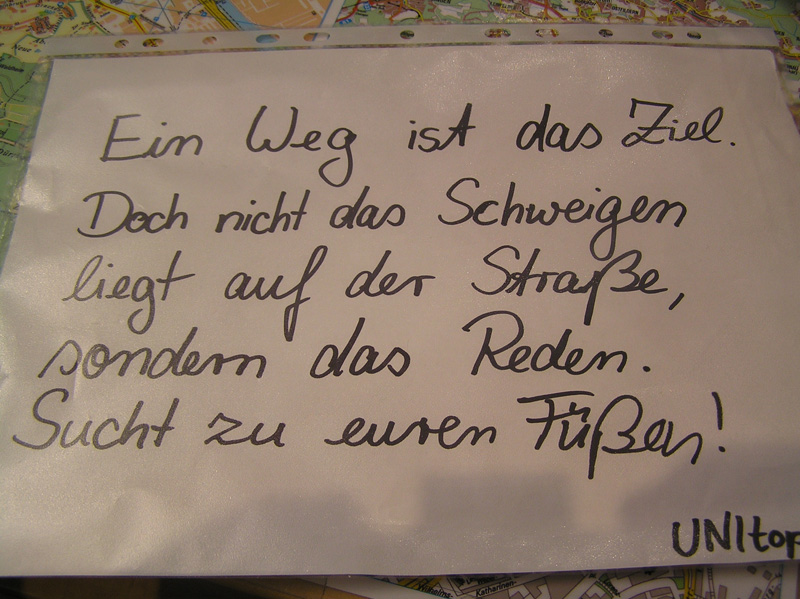 Ein Weg ist das Ziel.
Doch nicht das Schweigen
liegt auf der Straße,
sondern das Reden.
Sucht zu euren Füßen!
UNItop
Katharinen-